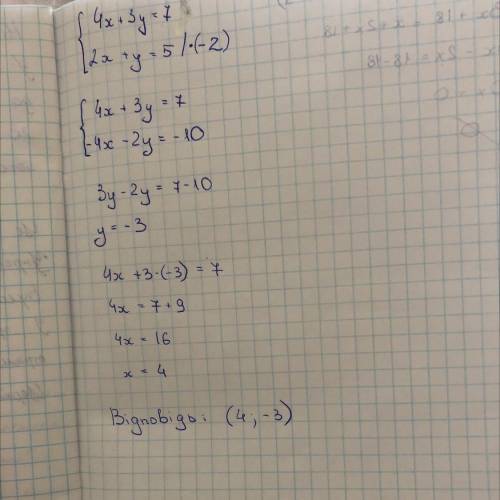 4x + 3y = 7
2x + y = 5 / · (-2)
4x + 3y = 7
-4x - 2y = -10
3y - 2y = 7 - 10
y = -3
4x + 3 · (-3) = 7
4x = 7 + 9
4x = 16
x = 4
Відповідь: (4; -3)